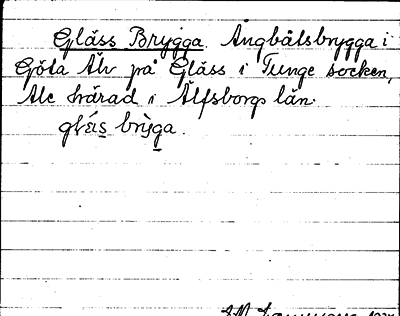 Gläss Brygga. Ångbåtsbrygga i
Göta Älv på Gläss i Tunge socken,
Ale härad i Älfsborgs län.
gléis brỳga.